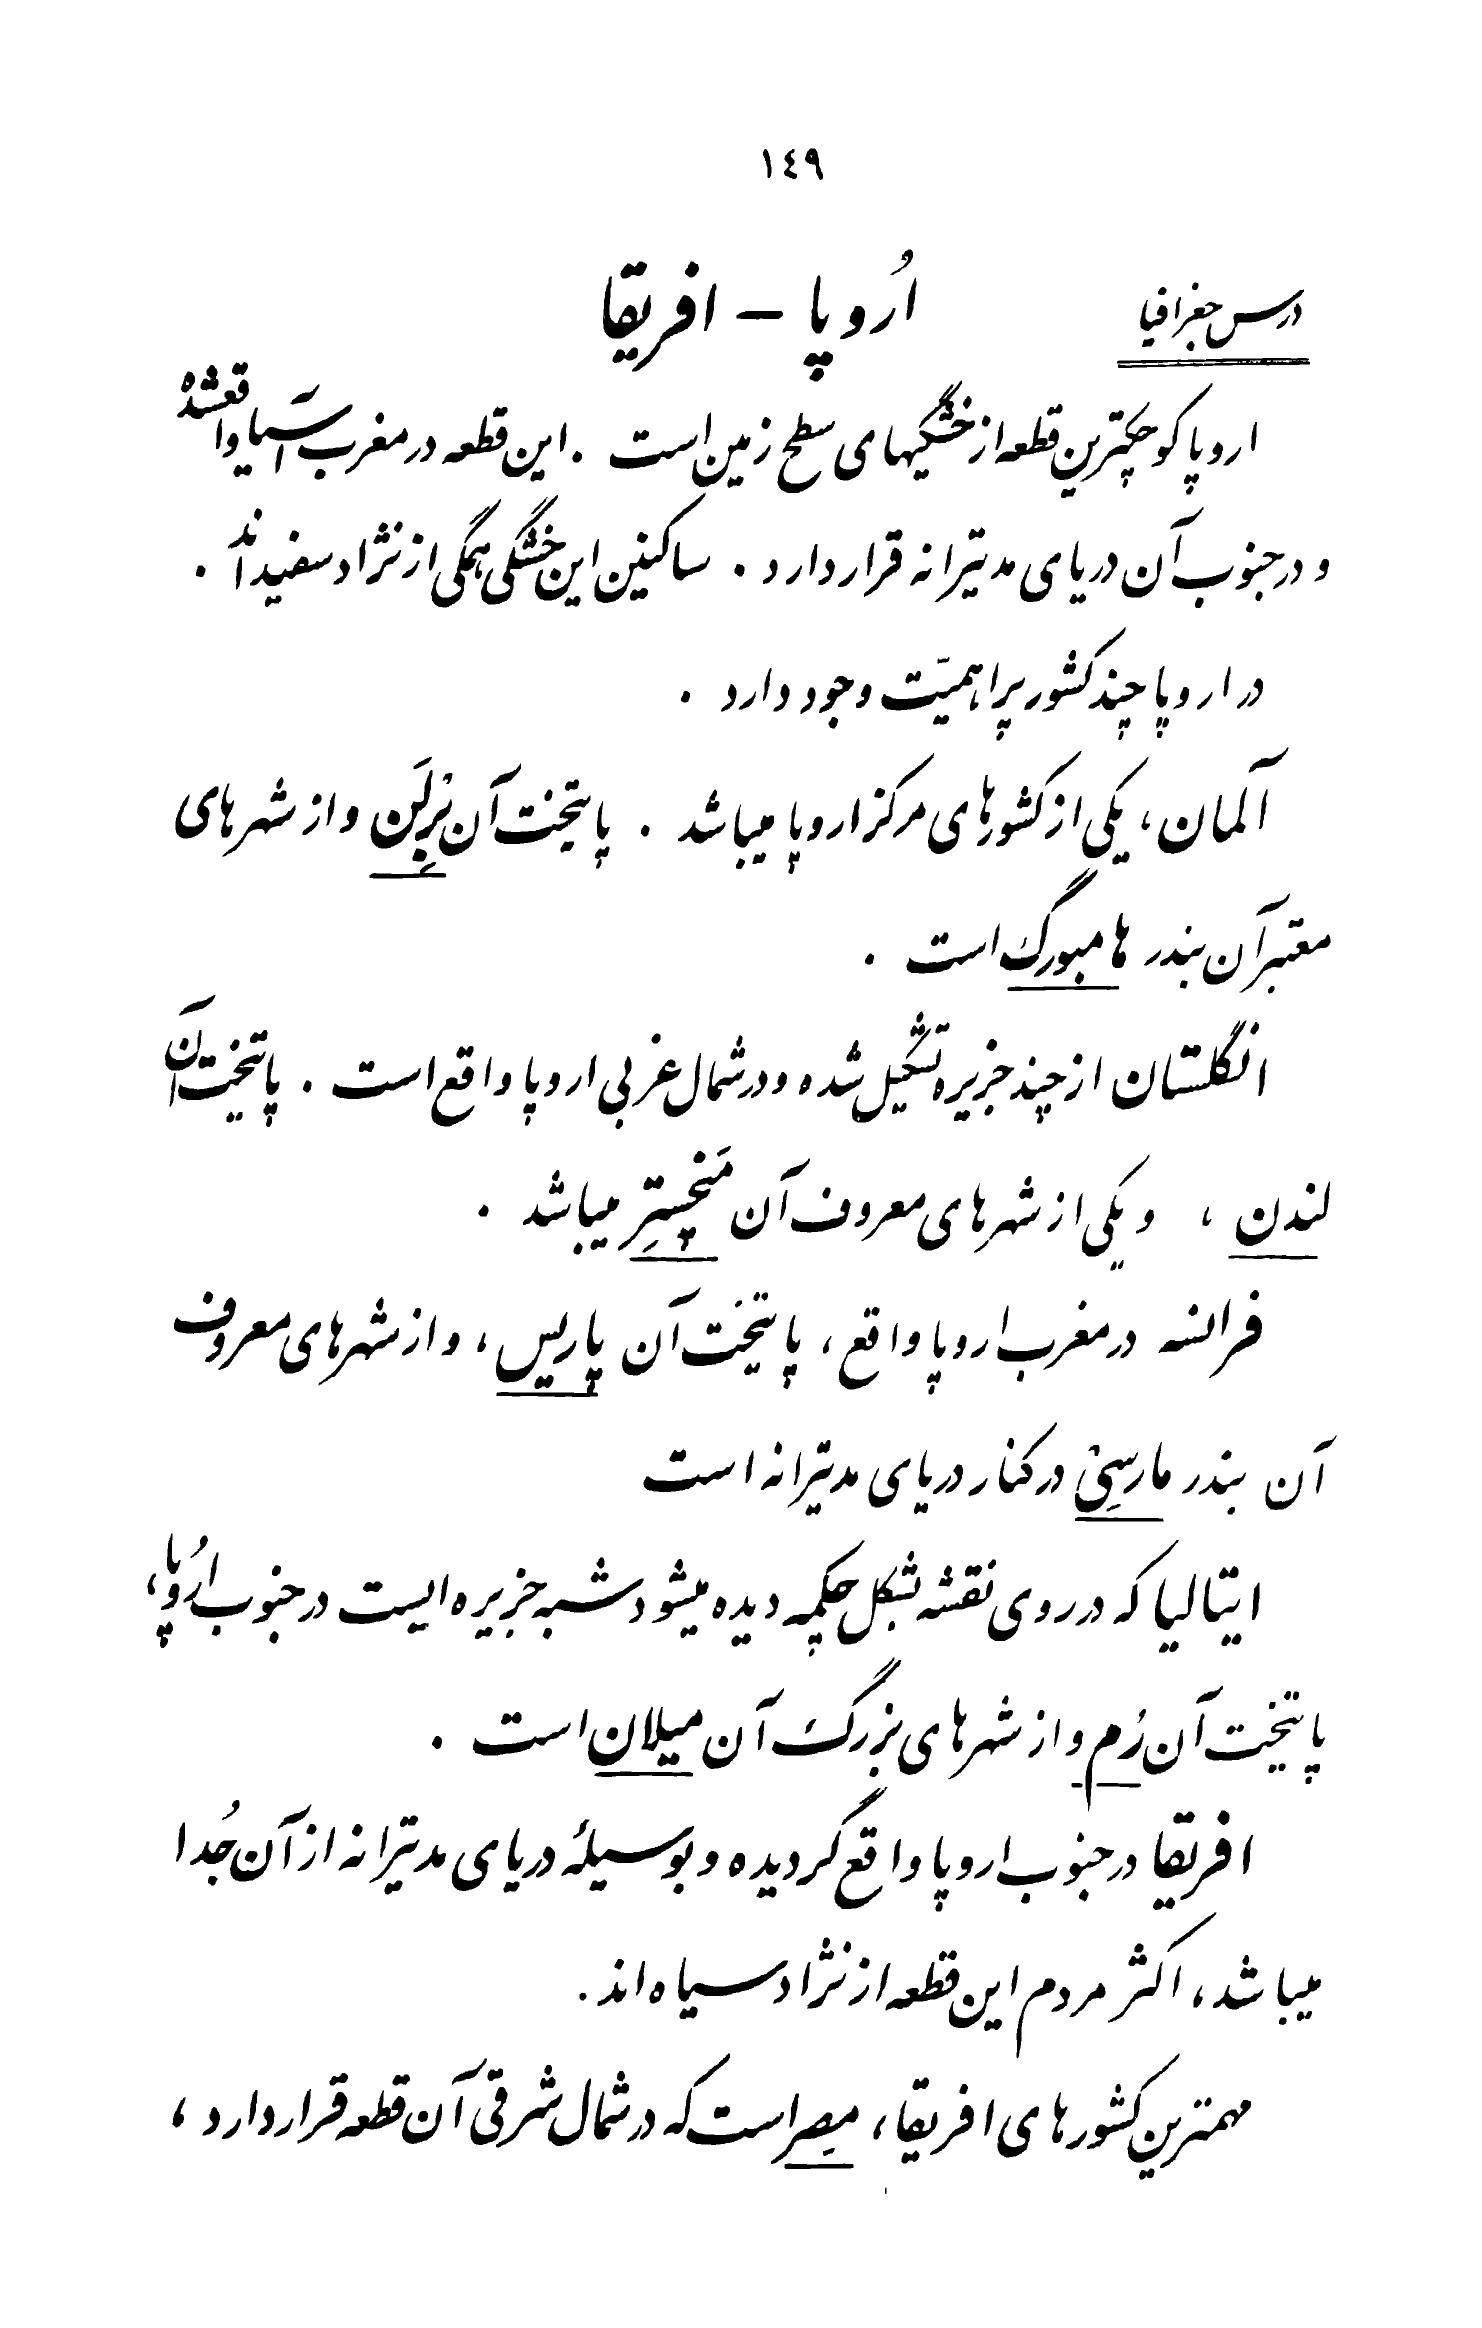 ۱٤۹
درس جغرافیا
اُروپا – افریقا
اروپا کوچکترین قطعه از خشگیهای سطح زمین است . این قطعه در مغرب آسیا واقعشده
و در جنوب آن دریای مدیترانه قرار دارد . ساکنین این خشگی همگی از نژاد سفیدند .
در اروپا چند کشور پر اهمیّت وجود دارد .
آلمان ، یکی از کشورهای مرکز اروپا میباشد . پایتخت آن بْرِلَن و از شهرهای
معتبر آن بندر هامبورگ است .
انگلستان از چند جزیره تشکیل شده و در شمال غربی اروپا واقع است . پایتخت آن
لندن ، و یکی از شهرهای معروف آن مَنچِستِر میباشد .
فرانسه در مغرب اروپا واقع ، پایتخت آن پاریس ، و از شهرهای معروف
آن بندر مارسِیْ در کنار دریای مدیترانه است
ایتالیا که در روی نقشه بشکل چکمه دیده میشود شبه جزیره ایست در جنوب اُروپا ،
پایتخت آن رُم و از شهرهای بزرگ آن میلان است .
افریقا در جنوب اروپا واقع گردیده و بوسیلهٔ دریای مدیترانه از آن جُدا
میباشد ، اکثر مردم این قطعه از نژاد سیاه اند .
مهمترین کشورهای افریقا ، مِصر است که در شمال شرقی آن قطعه قرار دارد ،